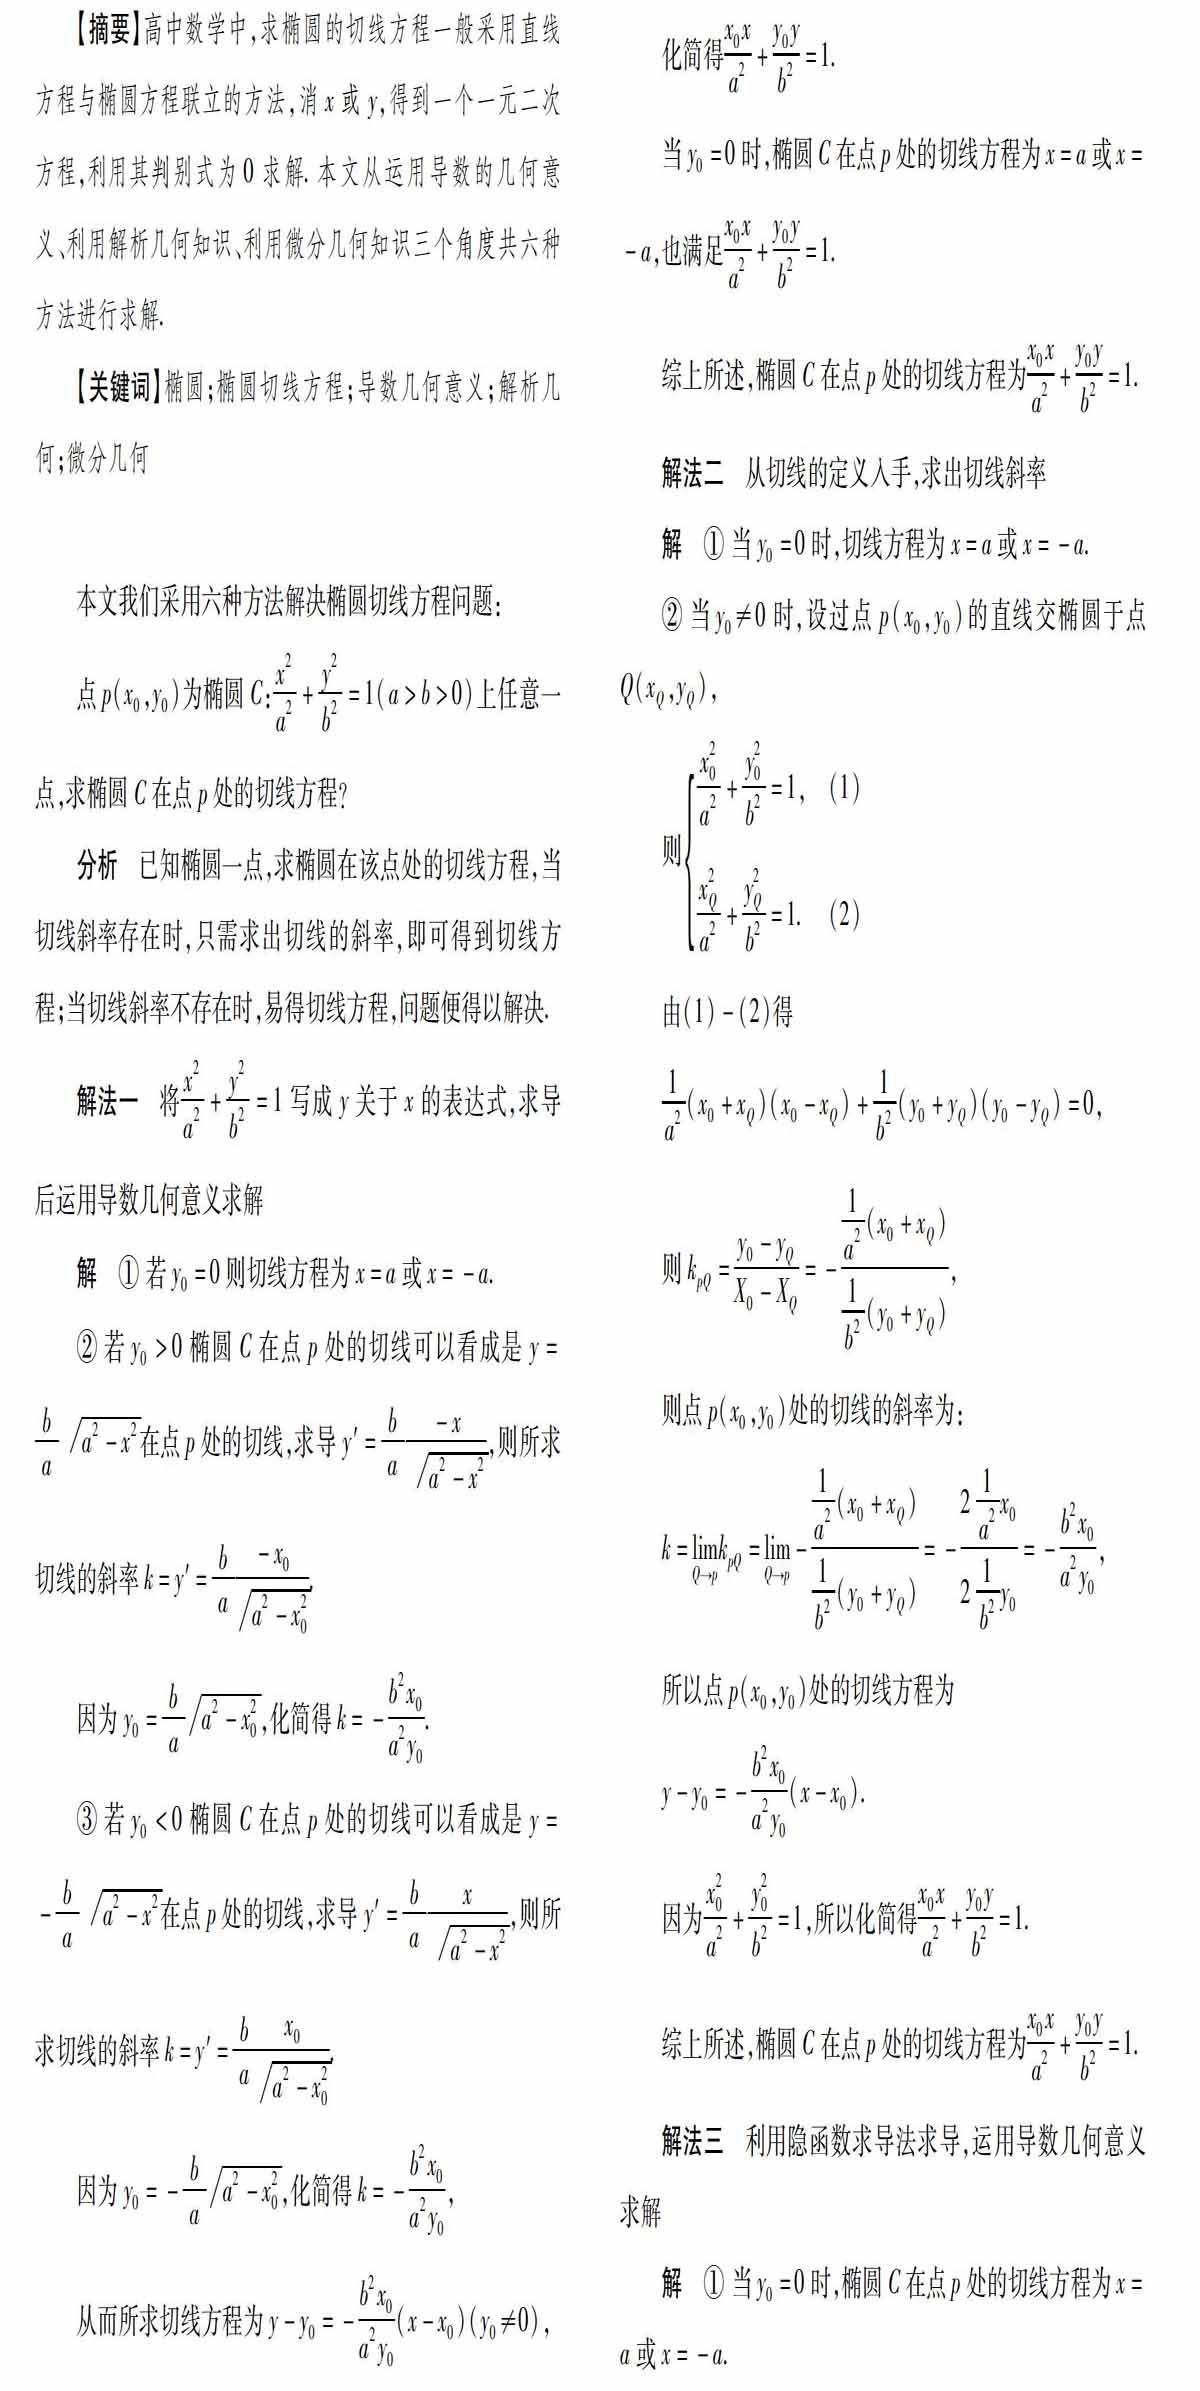 【摘要】高中数学中,求椭圆的切线方程一般采用直线
方程与椭圆方程联立的方法,消 x 或 y,得到一个一元二次
方程,利用其判别式为 0 求解. 本文从运用导数的几何意
义、利用解析几何知识、利用微分几何知识三个角度共六种
方法进行求解.
【关键词】椭圆;椭圆切线方程;导数几何意义;解析几
何;微分几何
本文我们采用六种方法解决椭圆切线方程问题:
点 p(x₀,y₀)为椭圆 C:x²/a² + y²/b² = 1(a > b > 0)上任意一
点,求椭圆 C 在点 p 处的切线方程?
分析 已知椭圆一点,求椭圆在该点处的切线方程,当
切线斜率存在时,只需求出切线的斜率,即可得到切线方
程;当切线斜率不存在时,易得切线方程,问题便得以解决.
解法一 将x²/a² + y²/b² = 1 写成 y 关于 x 的表达式,求导
后运用导数几何意义求解
解 ① 若 y₀ = 0 则切线方程为 x = a 或 x = -a.
② 若 y₀ > 0 椭圆 C 在点 p 处的切线可以看成是 y =
b/a √(a² - x²)在点 p 处的切线,求导 y′ = b/a · -x/√(a² - x²),则所求
切线的斜率 k = y′ = b/a · -x₀/√(a² - x₀²).
因为 y₀ = b/a √(a² - x₀²),化简得 k = -b²x₀/a²y₀.
③ 若 y₀ < 0 椭圆 C 在点 p 处的切线可以看成是 y =
-b/a √(a² - x²)在点 p 处的切线,求导 y′ = b/a · x/√(a² - x²),则所
求切线的斜率 k = y′ = b/a · x₀/√(a² - x₀²).
因为 y₀ = -b/a √(a² - x₀²),化简得 k = -b²x₀/a²y₀,
从而所求切线方程为 y - y₀ = -b²x₀/a²y₀(x - x₀)(y₀ ≠ 0),
化简得x₀x/a² + y₀y/b² = 1.
当 y₀ = 0 时,椭圆 C 在点 p 处的切线方程为 x = a 或 x =
-a,也满足x₀x/a² + y₀y/b² = 1.
综上所述,椭圆 C 在点 p 处的切线方程为x₀x/a² + y₀y/b² = 1.
解法二 从切线的定义入手,求出切线斜率
解 ① 当 y₀ = 0 时,切线方程为 x = a 或 x = -a.
② 当 y₀ ≠ 0 时,设过点 p(x₀,y₀)的直线交椭圆于点
Q(x_Q,y_Q),
则{x₀²/a² + y₀²/b² = 1, (1)
x_Q²/a² + y_Q²/b² = 1. (2)
由(1) - (2)得
1/a²(x₀ + x_Q)(x₀ - x_Q) + 1/b²(y₀ + y_Q)(y₀ - y_Q) = 0,
则 k_pQ = (y₀ - y_Q)/(X₀ - X_Q) = -[1/a²(x₀ + x_Q)]/[1/b²(y₀ + y_Q)],
则点 p(x₀,y₀)处的切线的斜率为:
k = lim_{Q→p} k_pQ = lim_{Q→p} -[1/a²(x₀ + x_Q)]/[1/b²(y₀ + y_Q)] = -[2 1/a² x₀]/[2 1/b² y₀] = -b²x₀/a²y₀,
所以点 p(x₀,y₀)处的切线方程为
y - y₀ = -b²x₀/a²y₀(x - x₀).
因为x₀²/a² + y₀²/b² = 1,所以化简得x₀x/a² + y₀y/b² = 1.
综上所述,椭圆 C 在点 p 处的切线方程为x₀x/a² + y₀y/b² = 1.
解法三 利用隐函数求导法求导,运用导数几何意义
求解
解 ① 当 y₀ = 0 时,椭圆 C 在点 p 处的切线方程为 x =
a 或 x = -a.